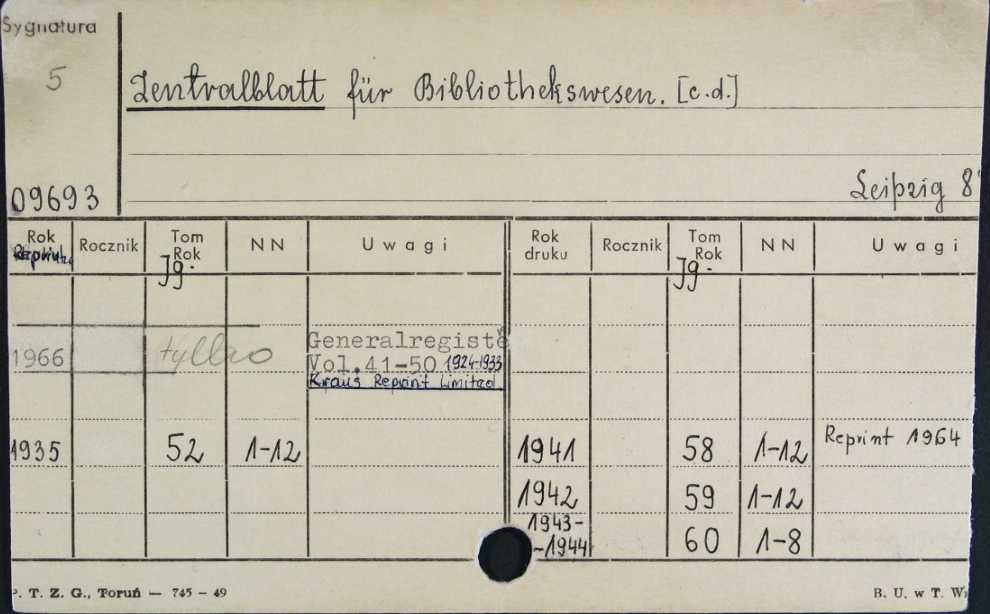 Sygnatura
5
Zentralblatt für Bibliothekswesen. [c.d.]
09693
Leipzig 8
Rok Rocznik Tom Rok NN Uwagi Rok druku Rocznik Tom Rok NN Uwagi
Jg. Jg.
1966 tylko Generalregiste
Vol. 41-50 1924-1933
Kraus Reprint Limited
1935 52 1-12 1941 58 1-12 Reprint 1964
1942 59 1-12
1943-
-1944 60 1-8
P. T. Z. G., Toruń — 745 - 49 B. U. w T. W